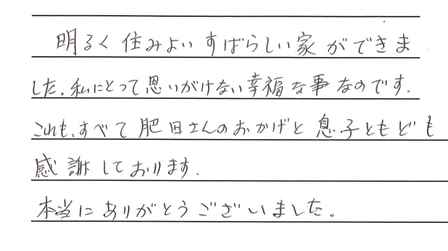 明るく住みよいすばらしい家ができま
した。私にとって思いがけない幸福な事なのです。
これも、すべて肥田さんのおかげと息子ともども
感謝しております。
本当にありがとうございました。